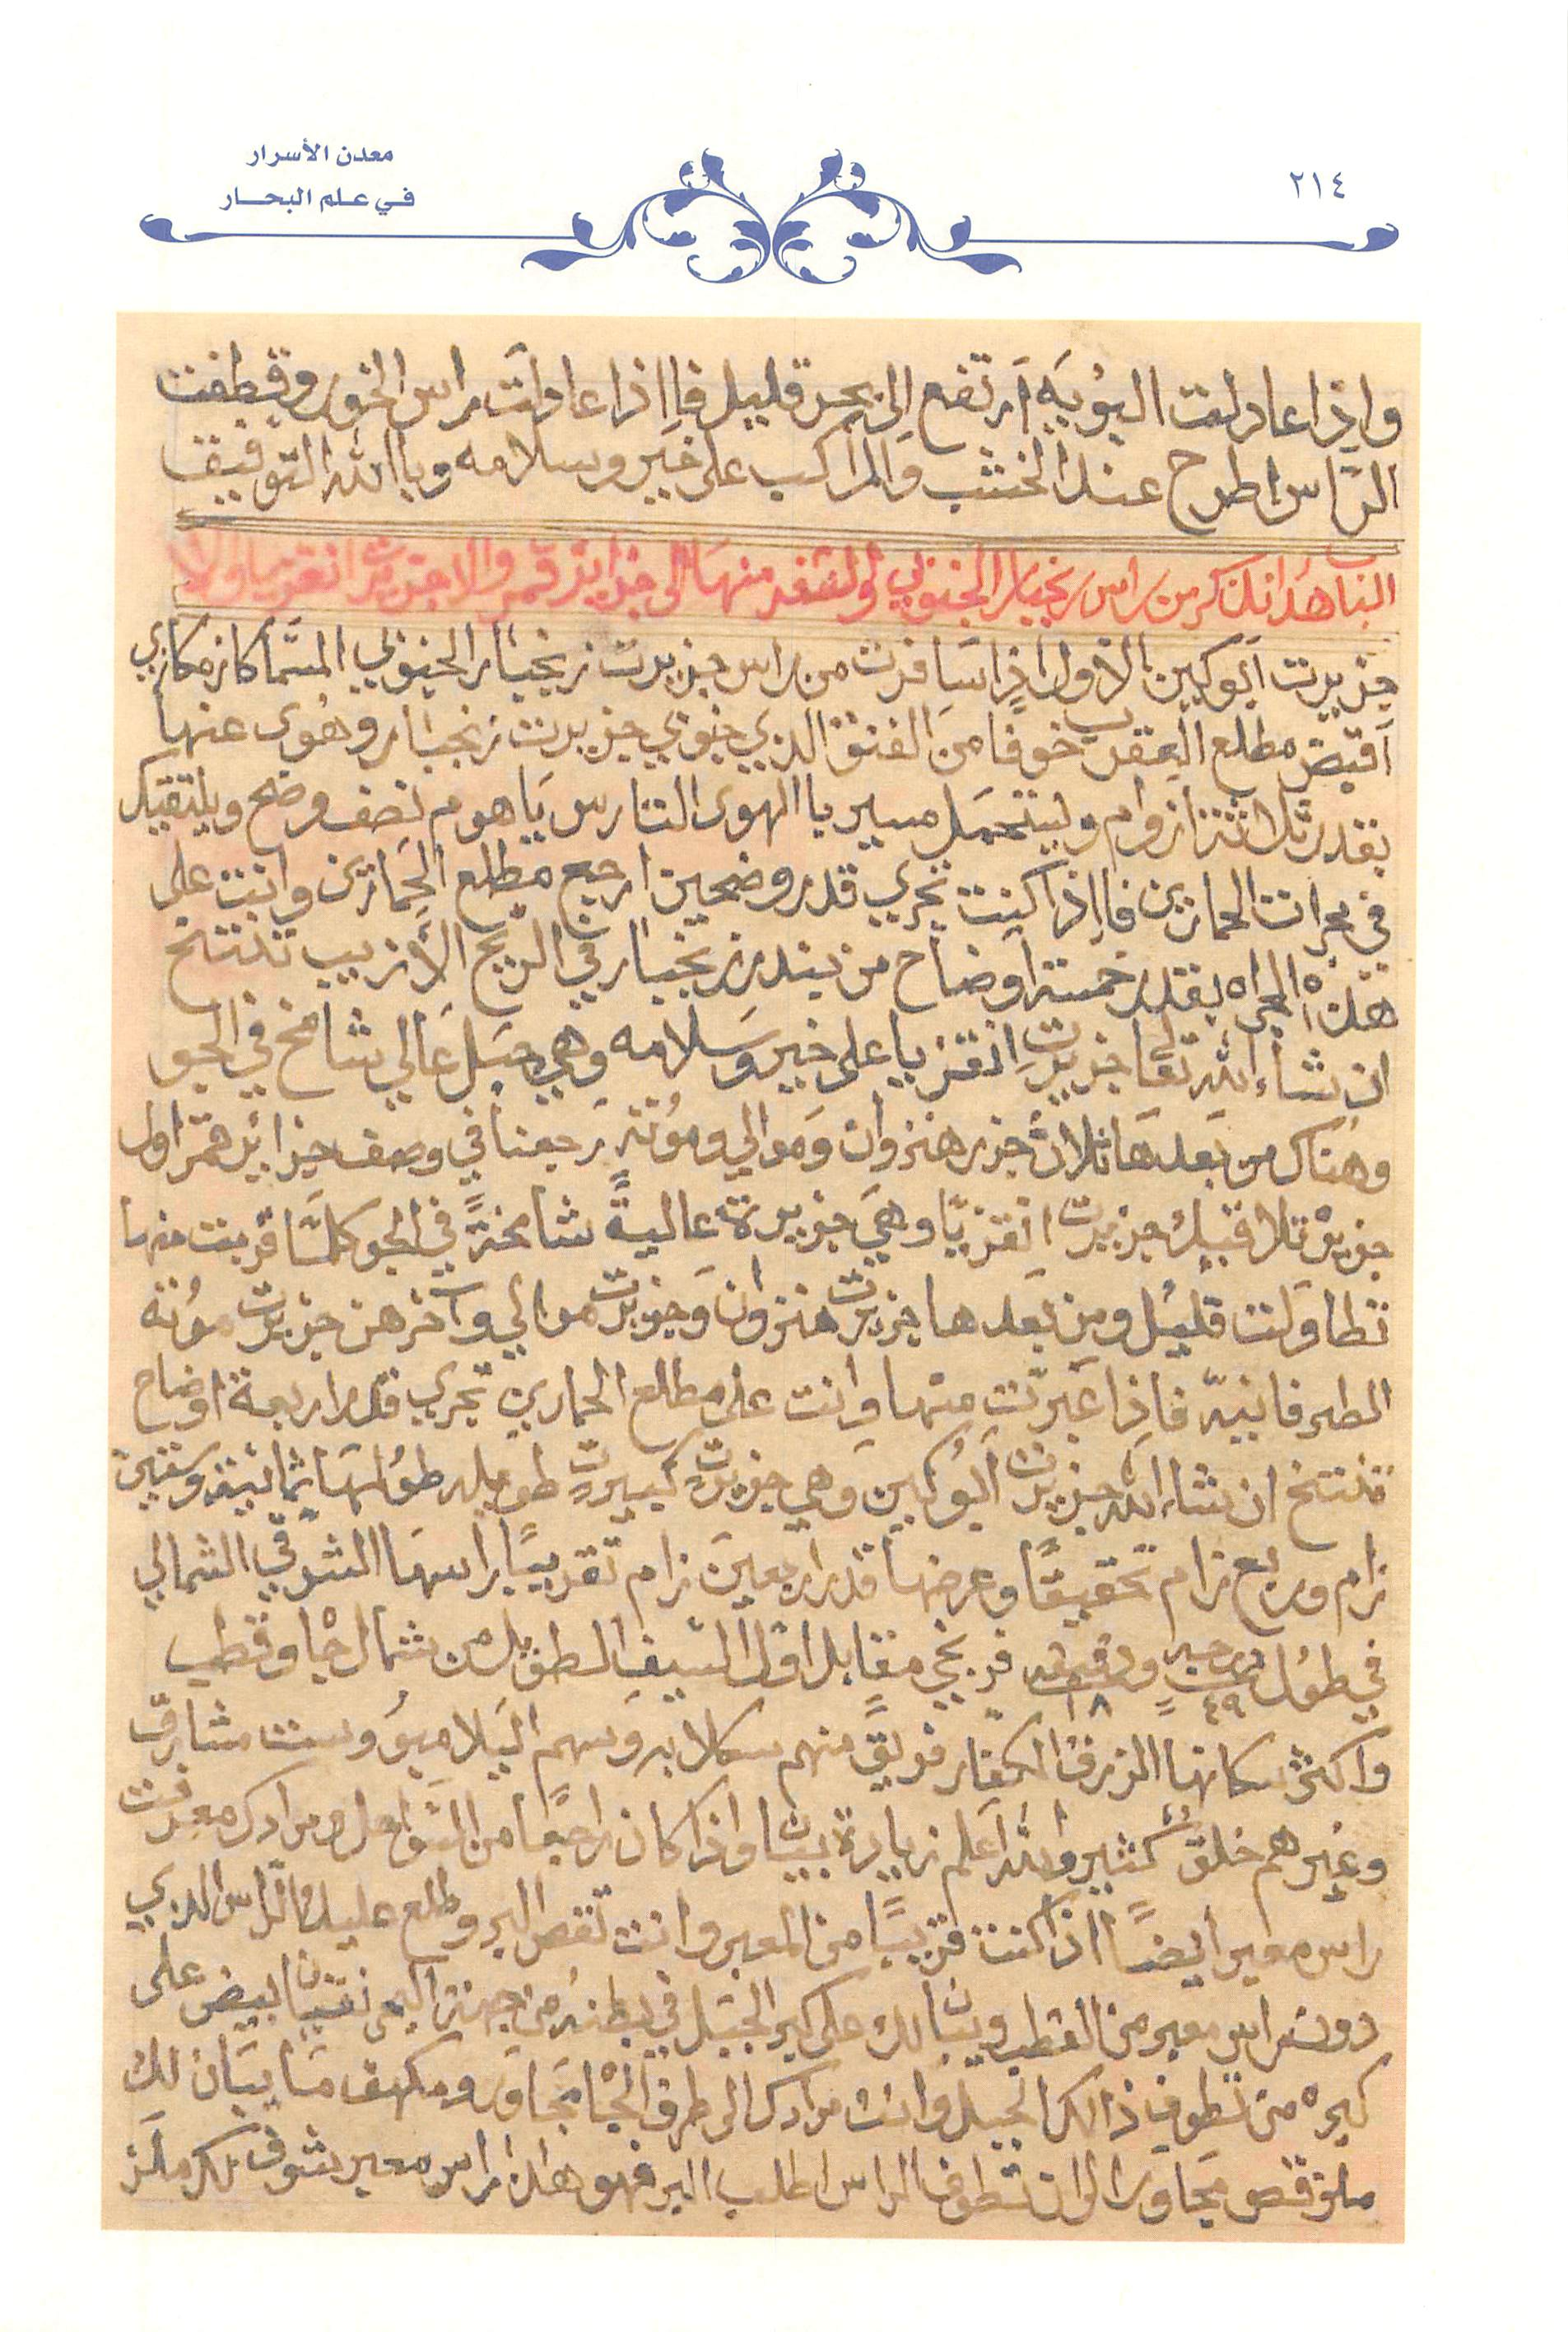 معدن الأسرار
في علم البحار
٢١٤
واذا عادلت البُويَه اَرتفع إلى بحر قليل فاإذا عادلت راس الخور وقطفت
الرّاس اطرح عند الخشب والمراكب على خيَر وسلامه وبا الله التوفيق
الباب هذا نذكر من راس زنجبار الجنوبي لو تسفر منها الى جزاير قمر والا جزيرت انقزيا ولا
جزيرت ابوكين الاول اذا سَافرت من راس جزيرت زنجبار الجنوبي المسَّما كازمكازي
اَقبض مطلع العقرب خوفًا من الفنق الذي جنوبي جزيرت زنجبار وهُوى عنها
بقدر ثلاثتزازوام وليتحمل مسير با الهوى التارس يَا هوم نصف وضح ويلتقيك
في مجرات الحمارين فاإذا كنت تجري قدر وضحين ارجع مطلع الحَمارين وانت على
هذهْ المجراه بقدر خمستاَوضاح من بندر زنجبار في الريح الأزيب تنتخ
ان شاء الله تعالى جزيرت اِنقزيا على خير وَسلامه وَهي جبَل عَالي شامخ في الجو
وهناك من بَعدهَا ثلاثْ جزر هنزوان وَموالي ومُوتَه رَجعنا في وصف جزائر قمر اول
جزيرة تلاقيك جزيرت انقزيّا وهيَ جزيرة عاليةً شامخةً في الجو كلمَّا قربت منها
تطاوَلت قليْل ومن بَعدها جزيرت هنزوان وَجزيرت موالي وآخرهن جزيرت موُته
المطر فانبّه فاذِا عَبرّت منها وَانت على مطلع الحمارين تجري قدر اربعة اوضاح
تنتخ ان شاء الله جزيرت اَبُوكين وَهي جزيرتٍ كبيرتٍ طويله طوُلهَا ثمانيه وَستين
زام وربع زام تحقيقًا وعرضها قدر اربعينَ زام تقريبًا راسهَا الشرقي الشمالي
في طوُل درجه ٤٩ ودقيقه ١٨ فرنجي مقابل اوّل السّيف الطويل من شمال جاه وقطب
واكثر سكانها الزرق الكفار فريقً منهم سكلابه وَسهم البَلامبوُ وست مشارق
وغيرهم خلقٌ كثيرٌ والله اَعلم زيادة بيان واذا كان راجعًا من السَّواحل ومرادك معرفت
راس معبر أيضًا اذا كنت قريبًا من المعبر وانت تقص البر وطلع عليك الرّاس الذي
دون راس معبر من القطب ويبان لك على كبر الجبَل في بطنهُ من جهت البر نقيان ابيض على
كبره من تطوف ذالك الجبَل وَانت مرادك الى طرف الجْاه مجَاور ومكهف مَا يبَان لك
ملزقص مجَاور الى ان تطوف الراس اطلب البر فهو هذا راس معبر تشوف لك ملَز